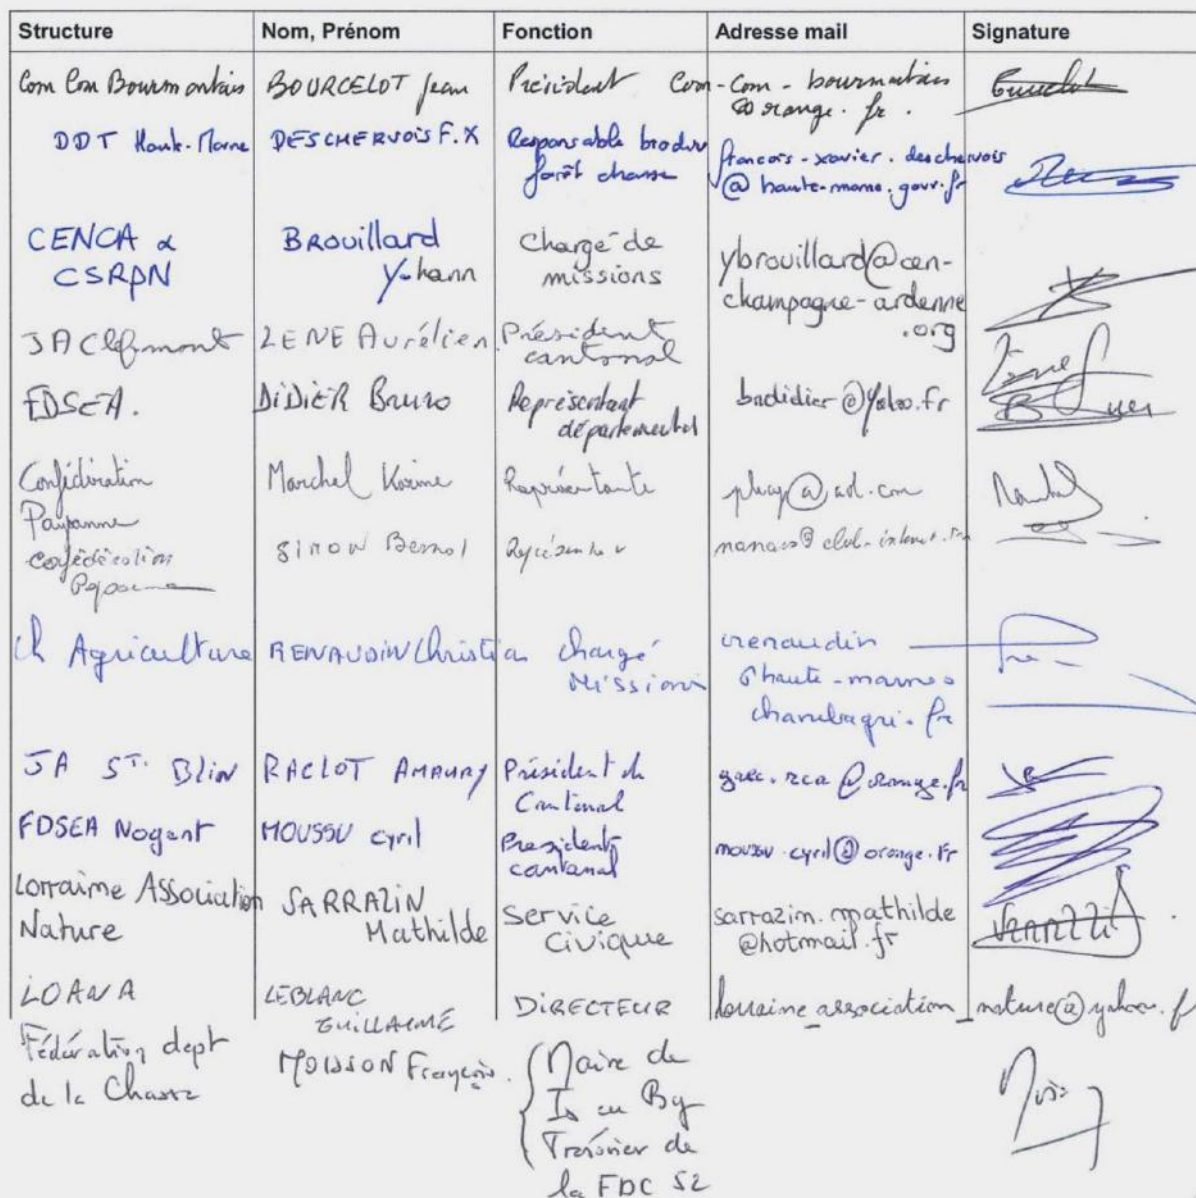 Structure Nom, Prénom Fonction Adresse mail Signature
Com Com Bourmontais BOURCELOT Jean Président Com-Com-bourmontais
@orange.fr.
DDT Haute-Marne DESCHERVOIS F.X Responsable
forêt chasse
francois-xavier.deschervois
@haute-marne.gouv.fr
CENCA &
CSRPN
Brouillard
Yohann
Chargé de
missions
ybrouillard@cen-
champagne-ardenne
.org
JA Clefmont ZENE Aurélien Président
cantonal
FDSEA. DiDiER Bruno Représentant
départemental
badidier@yahoo.fr
Confédération
Paysanne
Marchal Karine Représentante @aol.com
Confédération
Paysanne
SIMON
@club-internet.fr
Ch Agriculture RENAUDIN Christian chargé
Missions
crenaudin
@haute-marne.
chambagri.fr
JA ST. Blin RACLOT AMAURY Président du
Cantonal
gaec.rca@orange.fr
FDSEA Nogent MOUSSU cyril President
cantonal
moussu.cyril@orange.fr
Lorraine Association
Nature
SARRAZIN
Mathilde
Service
Civique
sarrazin.mathilde
@hotmail.fr
LOANA LEBLANC
GUILLAUME
DIRECTEUR lorraine_association_nature@yahoo.fr
Fédération dept
de la Chasse
MOISSON François. Maire de
Is en By
Trésorier de
la FDC 52